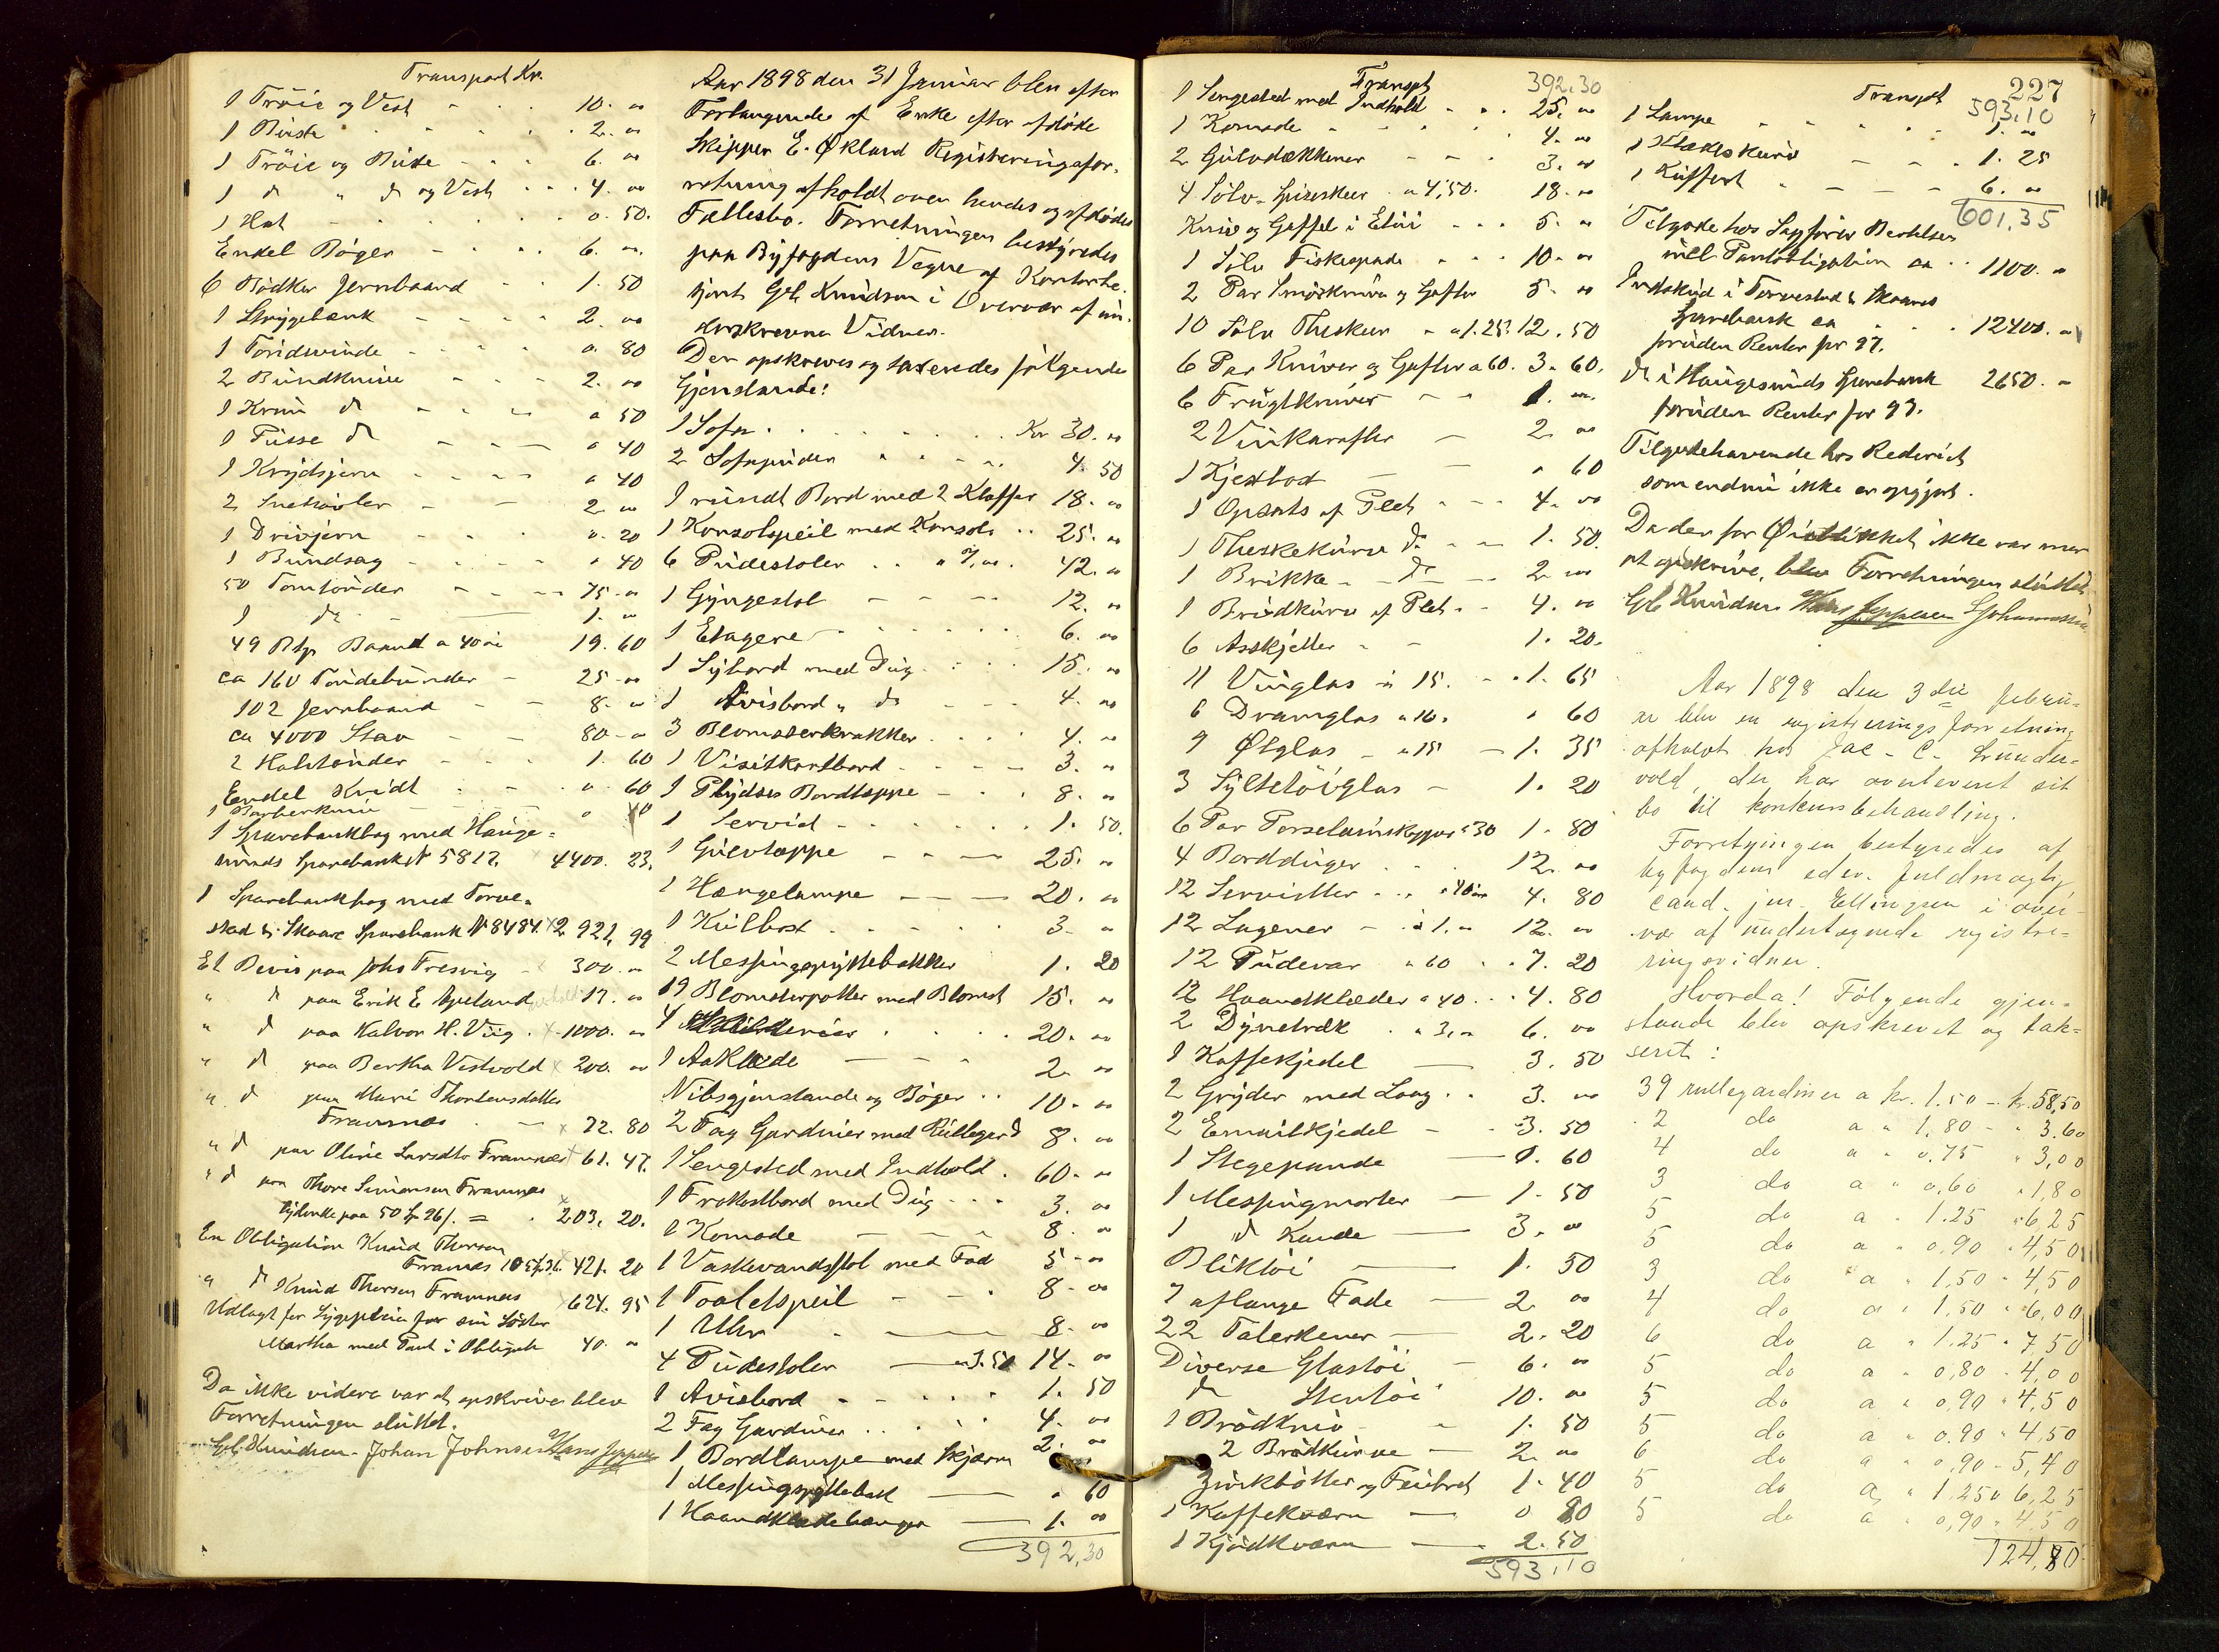 Transport Kr.
1 Trøie og Vest - - - 10. 00
1 Buxe - - - 2. 00
1 Trøie og Buxe - - - 6. 00
1 do " do og Vest - - - 4. 00
1 Hat - - - 0. 50.
Endel Bøger - - - 6. 00.
6 Bødker Jernbaand - - 1. 50
1 Strygebænk - - - 2. 00
1 Tøndevinde - - - 0. 80
2 Bundknive - - - 2. 00
1 Krum do - - - 0 50
1 Pusse do - - - 0 40
1 Krydsjern - - - 0 40
2 - - 2. 00
1 Drivjern - - - 0. 20
1 Bundsag - - - 0 40
50 Tomtønder - - - 75. 00
1 do - 1. 00
49 Btp Baand a 40 øre 19. 60
ca 160 Tøndebunder - 25. 00
102 Jernbaand - - 8. 00
ca 4000 Stav - - 80. 00
2 Halvtønder - - - 1. 60
Endel Kridt - - - 0. 60
1 Barberkniv
1 Sparebankbog med Hauge=
sunds Sparebank N 5812. 4400. 23.
1 Sparebankbog med Torve=
stad & Skaare Sparebank N 8484. 2 921, 99
Et Bevis paa Johs Tresvig - 300. 00
" do paa Erik E. Apeland 17. 00
" do paa Halvor H. Viig. 1000. 00
" do paa Bertha Vestvold 200. 00
" do paa Mari Thorkensdatter
Framnæs - 22. 80
" do paa Oline Larsdtr Framnæs 61. 47.
" do paa Thore Simonsen Framnæs
lydende paa 50 Sp 96 s. = 203. 20.
En Obligation Knud Thorsen
Framnes 105 Sp 36 s. 421. 20
" do Knud Thorsen Framnes 624. 95
Udlagt for Sygepleie for sin Søster
Martha med Pant i Obligati 40. 00
Da ikke videre var at opskrive blev
Forretningen sluttet.
Gab. Knudsen. Johan Johnsen Hans Jeppesen
Aar 1898 den 31 Januar blev efter
Forlangende af Enke efter afdøde
Skipper E. Økland Registreringsfor-
retning afholdt over hendes og afdødes
Fællesbo. Forretningen bestyredes
paa Byfogdens Vegne af Kontorbe-
tjent Gab Knudsen i Overvær af un-
derskrevne Vidner.
Der opskreves og taxeredes følgende
Gjenstande:
1 Sofa - - - Kr 30. 00
2 Sofapuder - - - 4. 50
1 rundt Bord med 2 Klaffer 18. 00
1 Konsolspeil med Konsol - - 25. 00
6 Pudestoler - - a 7,00. 42. 00
1 Gyngestol - - - 12. 00
1 Etagere - - - 6. 00
1 Sybord med Dug - - - 15. 00
1 Avisbord " do - - - 4. 00
3 Blomsterkrakker - - - 4. 00
1 Visitkortbord - - - 3. 00
1 Plydses Bordteppe - - - 8. 00
1 Servid - - - 1. 50.
1 Gulvtæppe - - - 25. 00
1 Hængelampe - - - 20. 00
1 Kulbox - - - 3. 00
2 Messingspyttebakker 1. 20
19 Blomsterpotter med Blomst 15. 00
4 Malerier - - - 20. 00
1 Aaklæde - - - 2. 00
Nibsgjenstande og Bøger - - 10. 00
2 Fag Gardiner med Rullegard 8. 00
1 Sengested med Indhold. 60. 00
1 Frokostbord med Dug - - - 3. 00
1 Komode - - - 8. 00
1 Vaskevandsstol med Fad 5. 00
1 Toaletspeil - - - 8. 00
1 Uhr - - - 8. 00
4 Pudestoler - a 3.50 14. 00
1 Avisbord - - - 1. 50
2 Fag Gardiner - - - 4. 00
1 Bordlampe med Skjærm 2. 00
1 Messingspyttebak - 0 60
1 Haandklædehænger - 1. 00
392,30
Transpt 392.30
1 Sengested med Indhold - - 25. 00
1 Komode - - - 4. 00
2 Gulvdækkener - - - 3. 00
4 Sølv-Spiseskeer a 4,50. 18. 00
Kniv og Gaffel i Etui - - - 5. 00
1 Sølv Fiskespade - - - 10. 00
2 Par Smørknive og Gafler 5. 00
10 Sølv Theskeer - a 1.25. 12. 50
6 Par Kniver og Gafler a 60. 3. 60.
6 Frugtkniver - - 1. 00.
2 Vinkarafler - 2. 00
1 Kjexbox - - 0 60
1 Opsats af Plet - - - 4. 00
1 Theskekurv do - - 1. 50.
1 Brikke - - do - 2. 00
1 Brødkurv af Plet - - 4. 00
6 Asskjetter - - 1. 20.
11 Vinglas a 15. - - 1. 65
6 Dramglas a 10. 0 60
9 Ølglas - a 15 - 1. 35
3 Syltetøiglas - 1. 20
6 Par Porselainskopper a 30 1. 80
4 Borddуger - - 12. 00
12 Servietter - - a 40 øre 4. 80
12 Lagener - a 1. 00 12. 00
12 Pudevar a 60 - - 7. 20
12 Haandklæder a 40 - - 4. 80
2 Dynetræk - a 3,00 6. 00
1 Kaffekjedel - 3. 50
2 Gryder med Laag - - 3. 00
2 Emailkjedel - - 3. 50
1 Stegepande - 0. 60
1 Messingmorter - 1. 50
1 do Kande - 3. 00
Bliktøi - 1. 50
7 aflange Fade - 2. 00
22 Talerkener - 2. 20
Diverse Glastøi - 6. 00
do Stentøi 10. 00
1 Brødkniv - 1. 50
2 Brødkurve - 2. 00
Zinkbøtter og Feiebret 1. 40
1 Kaffekværn - 0 80
1 Kjødkværn - 2. 50
593,10
227
Transpt 593,10
1 Lampe - - - 1. 00
1 - - - 1. 25
1 Kuffert - - - 6. 00
601,35
Tilgode hos Sagfører Bertelsen
inel Pantobligation ca - - 1100. 00
Indskud i Torvestad & Skaares
Sparebank ca - - - 12400. 00
foruden Renter for 97.
do i Haugesunds Sparebank 2650. 00
foruden Renter for 97.
Tilgodehavende hos Rederiet
som endnu ikke er opgjort.
Da der for Øieblikket ikke var mer
at opskrive, blev Forretningen sluttet
Gab Knudsen Hans Jeppesen
Aar 1898 den 3die februː
ar blev en registreringsforretning
afholdt hos Jac. C. Grunde=
vold, der har overleveret sit
bo til konkursbehandling.
Forretningen bestyredes af
byfogdens edsv. fuldmægtig,
cand. jur. Ellingsen i over-
vær af undertegnede registre=
ringsvidner.
Hvorda! Følgende gjen=
stande blev opskrevet og tak=
seret:
39 rullegardiner a kr. 1.50 - kr. 58,50
2 do a " 1,80 - " 3.60
4 do a " 0,75 " 3,00
3 do a " 0,60 " 1,80
5 do a " 1.25 " 6,25
5 do a " 0.90 " 4,50
3 do a " 1,50 " 4,50
4 do a " 1,50 " 6,00
6 do a " 1.25 " 7,50
5 do a " 0,80 " 4,00
5 do a " 0,90 " 4,50
5 do a " 0.90 " 4,50
6 do a " 0,90 " 5,40
5 do a " 1.25 " 6,25
5 do a " 0,90 " 4.50
124,80